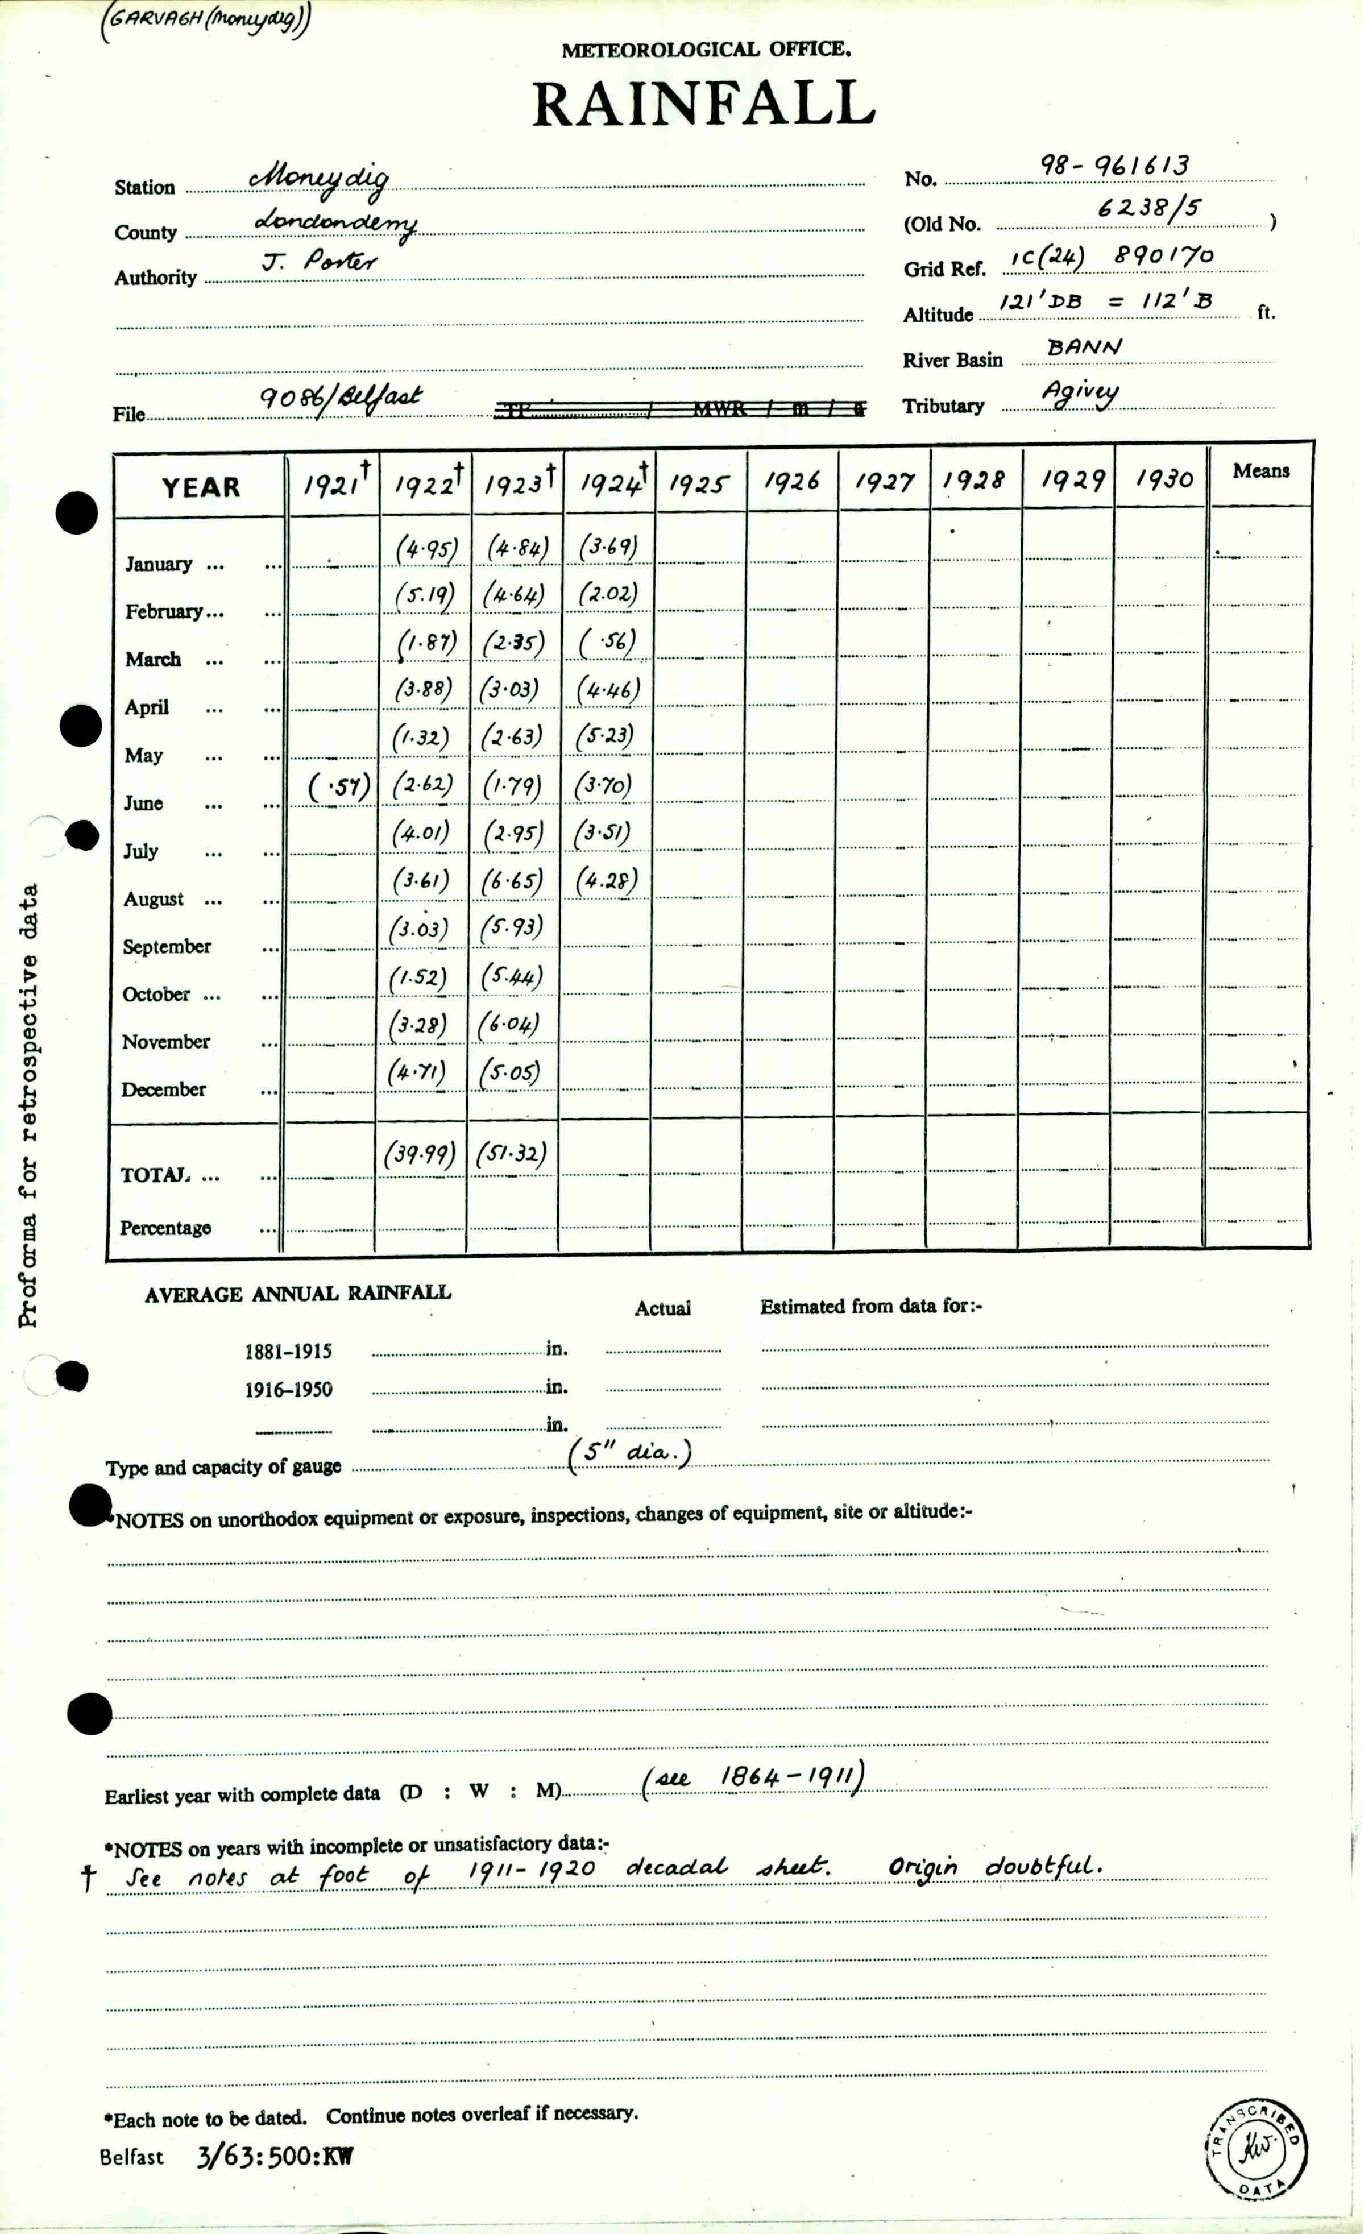 (GARVAGH (Moneydig))
METEOROLOGICAL OFFICE.
RAINFALL
Station Moneydig No. 98-961613
County Londonderry (Old No. 6238/5 )
Authority J. Porter Grid Ref. IC(24) 890170
Altitude 121' DB = 112' B ft.
River Basin BANN
File 9086/Belfast TF / MWR / m / a Tributary Agivey
YEAR 1921† 1922† 1923† 1924† 1925 1926 1927 1928 1929 1930 Means
January ... ... (4.95) (4.84) (3.69)
February ... ... (5.19) (4.64) (2.02)
March ... ... (1.87) (2.35) ( .56)
April ... ... (3.88) (3.03) (4.46)
May ... ... (1.32) (2.63) (5.23)
June ... ... ( .57) (2.62) (1.79) (3.70)
July ... ... (4.01) (2.95) (3.51)
August ... ... (3.61) (6.65) (4.28)
September ... (3.03) (5.93)
October ... ... (1.52) (5.44)
November ... (3.28) (6.04)
December ... (4.71) (5.05)
TOTAL ... ... (39.99) (51.32)
Percentage ...
Proforma for retrospective data
AVERAGE ANNUAL RAINFALL Actual Estimated from data for:-
1881-1915 in.
1916-1950 in.
in.
Type and capacity of gauge (5" dia.)
*NOTES on unorthodox equipment or exposure, inspections, changes of equipment, site or altitude:-
Earliest year with complete data (D : W : M) (see 1864-1911)
*NOTES on years with incomplete or unsatisfactory data:-
† See notes at foot of 1911-1920 decadal sheet. Origin doubtful.
*Each note to be dated. Continue notes overleaf if necessary.
Belfast 3/63:500:KW
TRANSCRIBED
KW
DATA